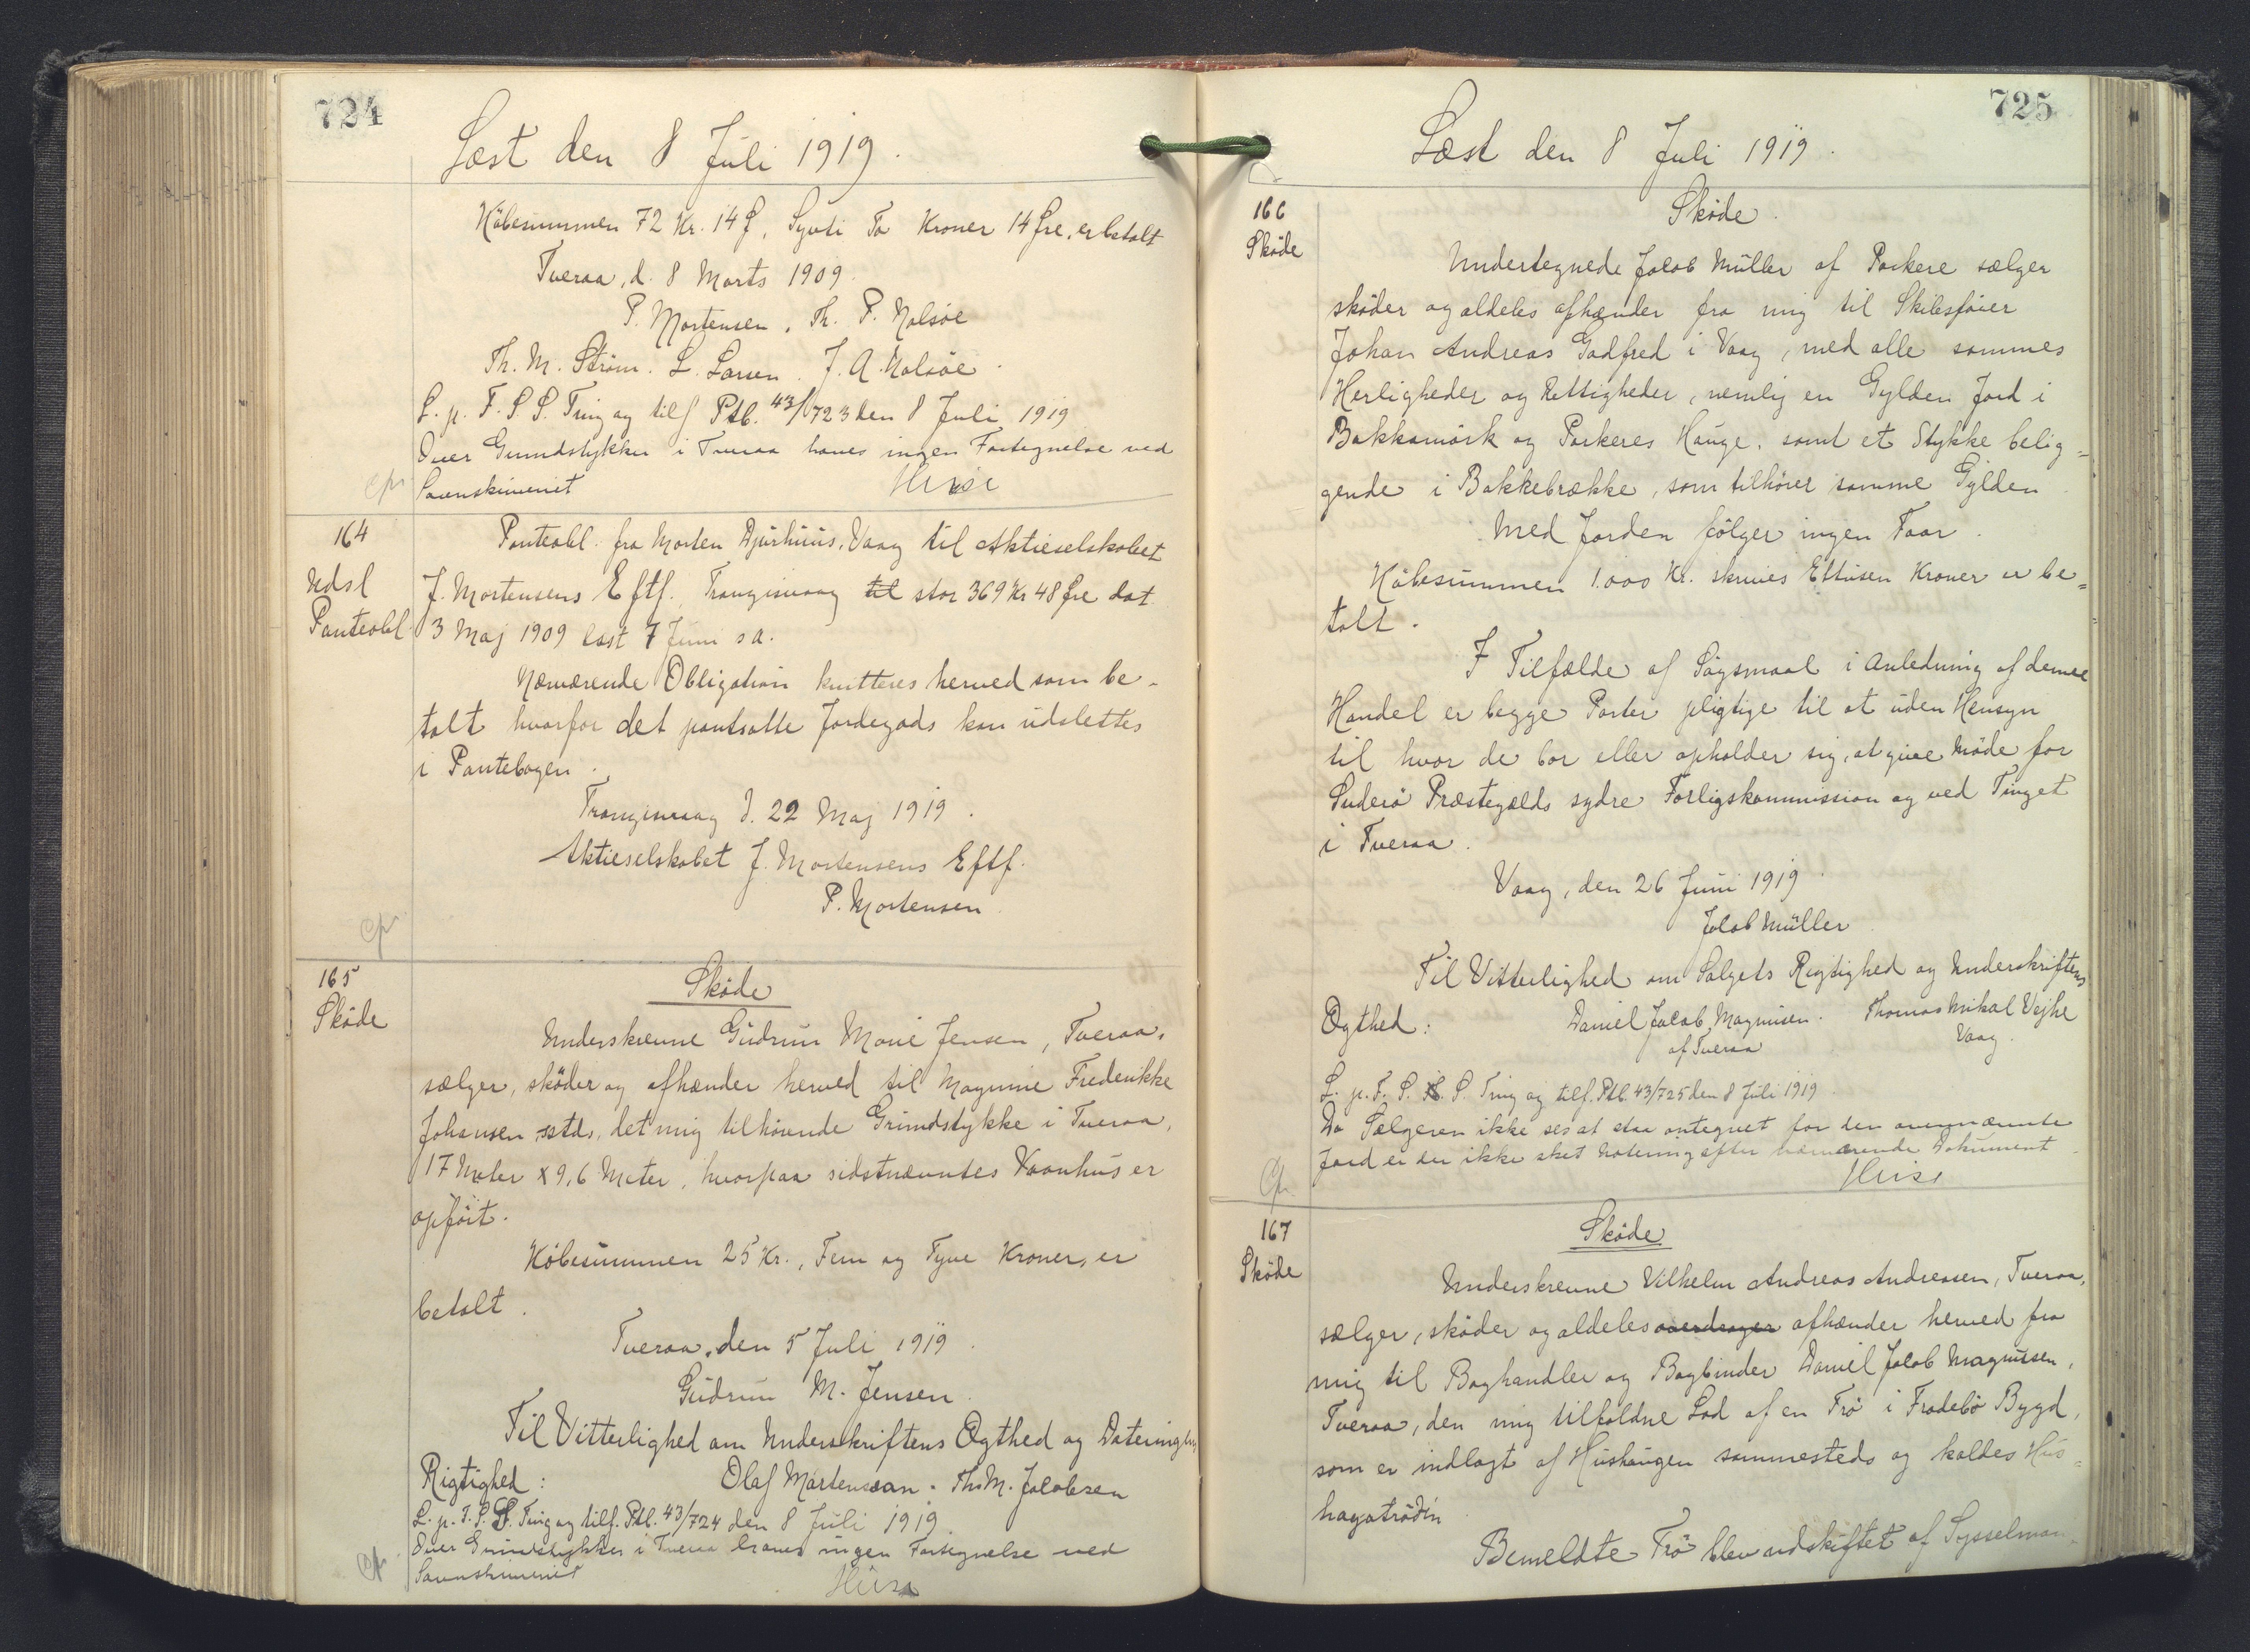 724
Læst den 8 Juli 1919.
Köbesummen 72 Kr. 14 Ø, Sytti To Kroner 14 Øre, er betalt
Tveraa, d. 8 Marts 1909
P. Mortensen, Th. P. Nolsöe
Th. M. Ström. L. Larsen. J. A. Nolsöe.
L. p. F. S. S. Ting og tilf Ptb. 43/723 den 8 Juli 1919
Over Grundstykker i Tveraa haves ingen Fortegnelse ved
Sorenskriveriet
164
Udsl
Panteobl.
Panteobl. fra Morten Djurhuus, Vaag til Aktieselskabet
J. Mortensens Eftf. Trangisvaag til stor 369 Kr 48 Øre dat
3 Maj 1909 læst 7 Juni s a.
Nærværende Obligation kvitteres herved som be-
talt hvorfor det pantsatte Jordegods kan udslettes
i Pantebogen.
Trangisvaag d. 22 Maj 1919.
Aktieselskabet J. Mortensens Eftf.
P. Mortensen
165
Sköde
Sköde
Underskrevne Gudrun Marie Jensen, Tveraa,
sælger, sköder og afhænder herved til Magnine Frederikke
Johansen sstds, det mig tilhörende Grundstykke i Tveraa,
17 Meter x 9,6 Meter, hvorpaa sidstnævntes Vaanhus er
opfört.
Köbesummen 25 Kr., Fem og Tyve Kroner, er
betalt.
Tveraa, den 5 Juli 1919.
Gudrun M. Jensen
Til Vitterlighed om Underskriftens Ægthed og Dateringens
Rigtighed: Olaf Martensean. Th. M. Jacobsen
L. p. F. S. S. Ting og tilf. Ptb. 43/724 den 8 Juli 1919
Over Grundstykker i Tveraa haves ingen Fortegnelse ved
Sorenskriveriet
725
Læst den 8 Juli 1919.
166
Sköde
Sköde.
Undertegnede Jacob Müller af Porkere sælger
sköder og aldeles afhænder fra mig til Skibsförer
Johan Andreas Godfred i Vaag, med alle sammes
Herligheder og Rettigheder, nemlig en Gylden Jord i
Bakkamörk og Porkeres Hauge, samt et Stykke belig=
gende i Bakkebrække, som tilhörer samme Gylden
Med Jorden fölger ingen Faar.
Köbesummen 1.000 Kr. skrives Ettusen Kroner er be=
talt.
I Tilfælde af Sögsmaal i Anledning af denne
Handel er begge Parter pligtige til at uden Hensyn
til hvor de bor eller opholder sig, at give Möde for
Suderö Præstegælds sydre Forligskommission og ved Tinget
i Tveraa.
Vaag, den 26 Juni 1919.
Jacob Müller
Til Vitterlighed om Salgets Rigtighed og Underskriftens
Ægthed: Daniel Jacob Magnusen. Thomas Mikal Vejhe
af Tveraa Vaag.
L. p. F. S. S. Ting og tilf. Ptb. 43/725 den 8 Juli 1919.
Da Sælgeren ikke ses at staa antegnet for den ovennævnte
Jord er der ikke sket Notering efter nærværende Dokument.
167
Sköde
Sköde
Underskrevne Vilhelm Andreas Andreasen, Tveraa,
sælger, sköder og aldeles overdrager afhænder herved fra
mig til Boghandler og Bogbinder Daniel Jacob Magnusen,
Tveraa, den mig tilfaldne Lod af en Trö i Frodebö Bygd,
som er indlagt af Hushaugen sammesteds og kaldes Hus=
hagatrödin
Bemeldte Trö blev udskiftet af Sysselman-